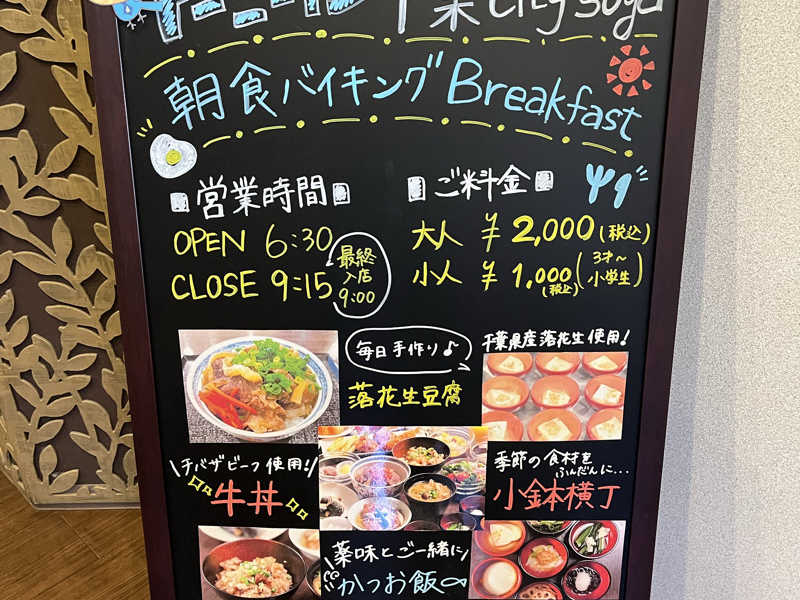 千葉City Soga
朝食バイキング Breakfast
営業時間
OPEN 6:30
CLOSE 9:15
最終
入店
9:00
ご料金
大人 ¥2,000(税込)
小人 ¥1,000(税込)
(3才〜
小学生)
毎日手作り♪
落花生豆腐
千葉県産落花生使用!
\チバザビーフ使用!/
牛丼
季節の食材を
ふんだんに…
小鉢横丁
薬味とご一緒に
かつお飯